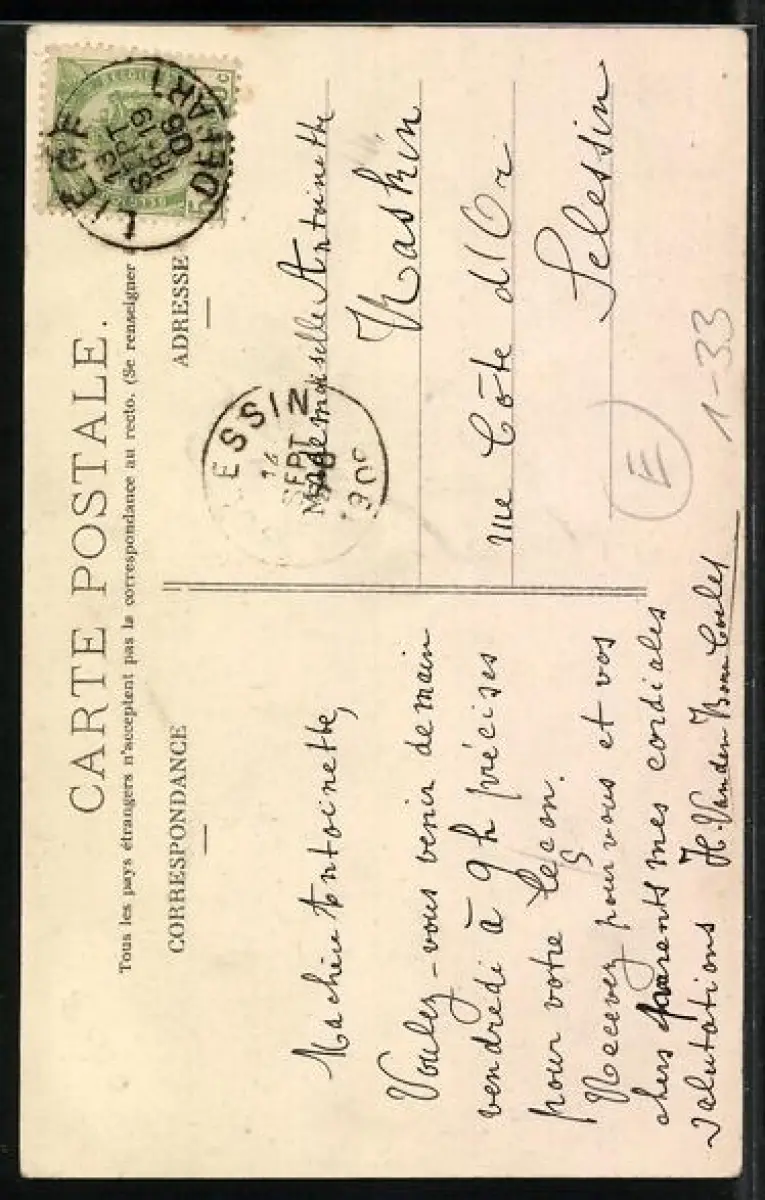 CARTE POSTALE.
Tous les pays étrangers n'acceptent pas la correspondance au recto. (Se renseigner
CORRESPONDANCE
Ma chère Antoinette,
Voulez-vous venir demain
vendredi à 9 h précises
pour votre leçon.
Recevez pour vous et vos
chers parents mes cordiales
salutations H. Vanden
ADRESSE
LIEGE
13
SEPT
18-19
06
DEPART
ESSIN
14
SEPT
190
Mademoiselle Antoinette
Raskin
rue Côte d'Or
Sclessin
E
1-33